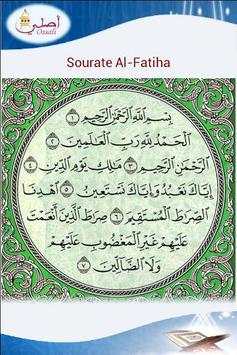 أصلي
Ousali
Sourate Al-Fatiha
بِسْمِ ٱللَّهِ ٱلرَّحْمَٰنِ ٱلرَّحِيمِ ١
ٱلْحَمْدُ لِلَّهِ رَبِّ ٱلْعَٰلَمِينَ ٢
ٱلرَّحْمَٰنِ ٱلرَّحِيمِ ٣ مَٰلِكِ يَوْمِ ٱلدِّينِ ٤
إِيَّاكَ نَعْبُدُ وَإِيَّاكَ نَسْتَعِينُ ٥ ٱهْدِنَا
ٱلصِّرَٰطَ ٱلْمُسْتَقِيمَ ٦ صِرَٰطَ ٱلَّذِينَ أَنْعَمْتَ
عَلَيْهِمْ غَيْرِ ٱلْمَغْضُوبِ عَلَيْهِمْ
وَلَا ٱلضَّآلِّينَ ٧